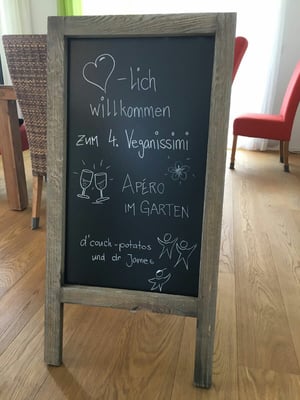 -lich
willkommen
zum 4. Veganissimi
APÉRO
IM GARTEN
d'couch-potatos
und dr James